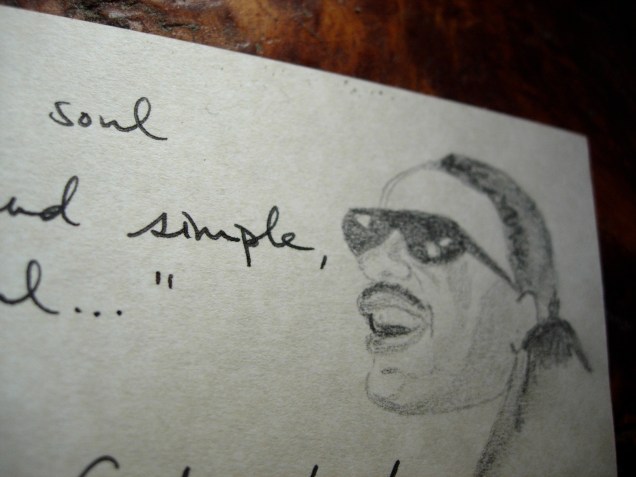 soul
nd simple,
l..."